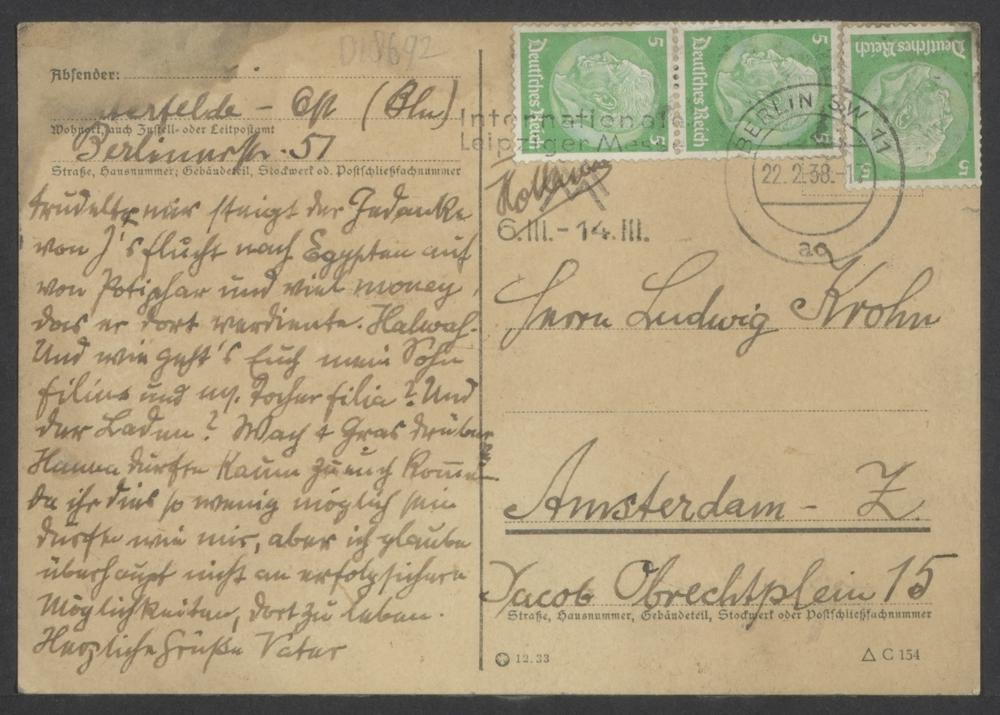 D18692
Absender:
erfelde - Ost (Bln)
Wohnort, auch Zustell- oder Leitpostamt
Berlinerstr. 51
Straße, Hausnummer; Gebäudeteil, Stockwerk od. Postschließfachnummer
trudelt, nur steigt der Gedanke
von J's flucht nach Egypten auf
von Potiphar und viel money,
das er dort verdiente. Halwah.
Und wie geht's Euch mein Sohn
filius und my. Tochter filia? Und
der Laden? Wach t Gras drüber
Hanna dürfte kaum zu euch kommen
da ihr dies so wenig möglich sein
dürfte wie mir, aber ich glaube
überhaupt nicht an erfolgsichere
Möglichkeiten, dort zu leben.
Herzliche Grüße Vater
Deutsches Reich 5 5
Deutsches Reich 5 5
Deutsches Reich 5 5
Internationale
Leipziger Messe
Holland
6.III. - 14.III.
BERLIN SW 11
22.2.38.-1
aq
Herrn Ludwig Krohn
Amsterdam - Z.
Jacob Obrechtplein 15
Straße, Hausnummer, Gebäudeteil, Stockwerk oder Postschließfachnummer
12.33
C 154